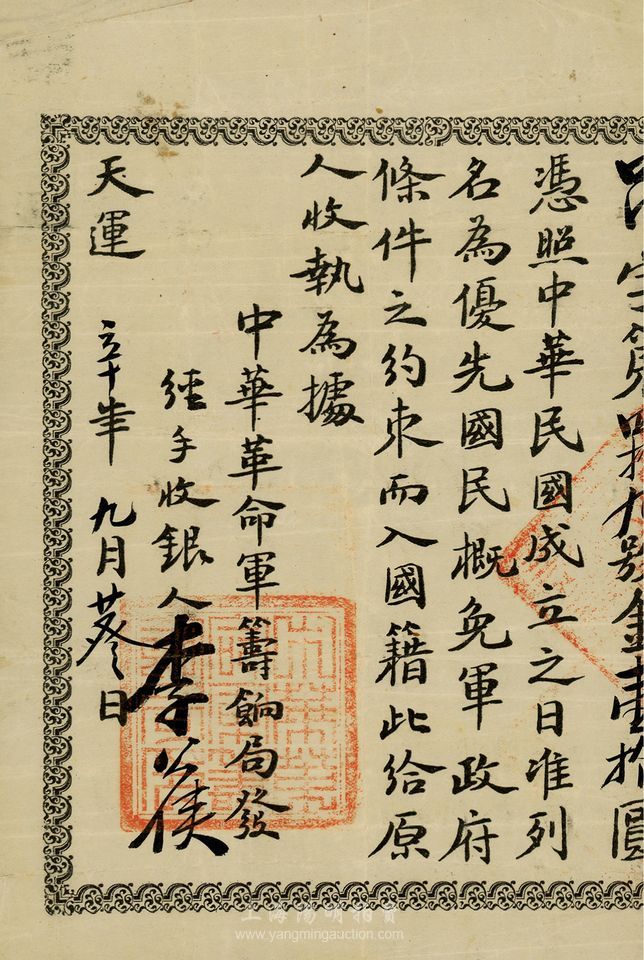 字第肆拾九號金壹拾圓
憑照中華民國成立之日准列
名為優先國民概免軍政府
條件之約束而入國籍此給原
人收執為據
中華革命軍籌餉局發
經手收銀人李公俠
天運 年九月 日
上海陽明拍賣
www.yangmingauction.com